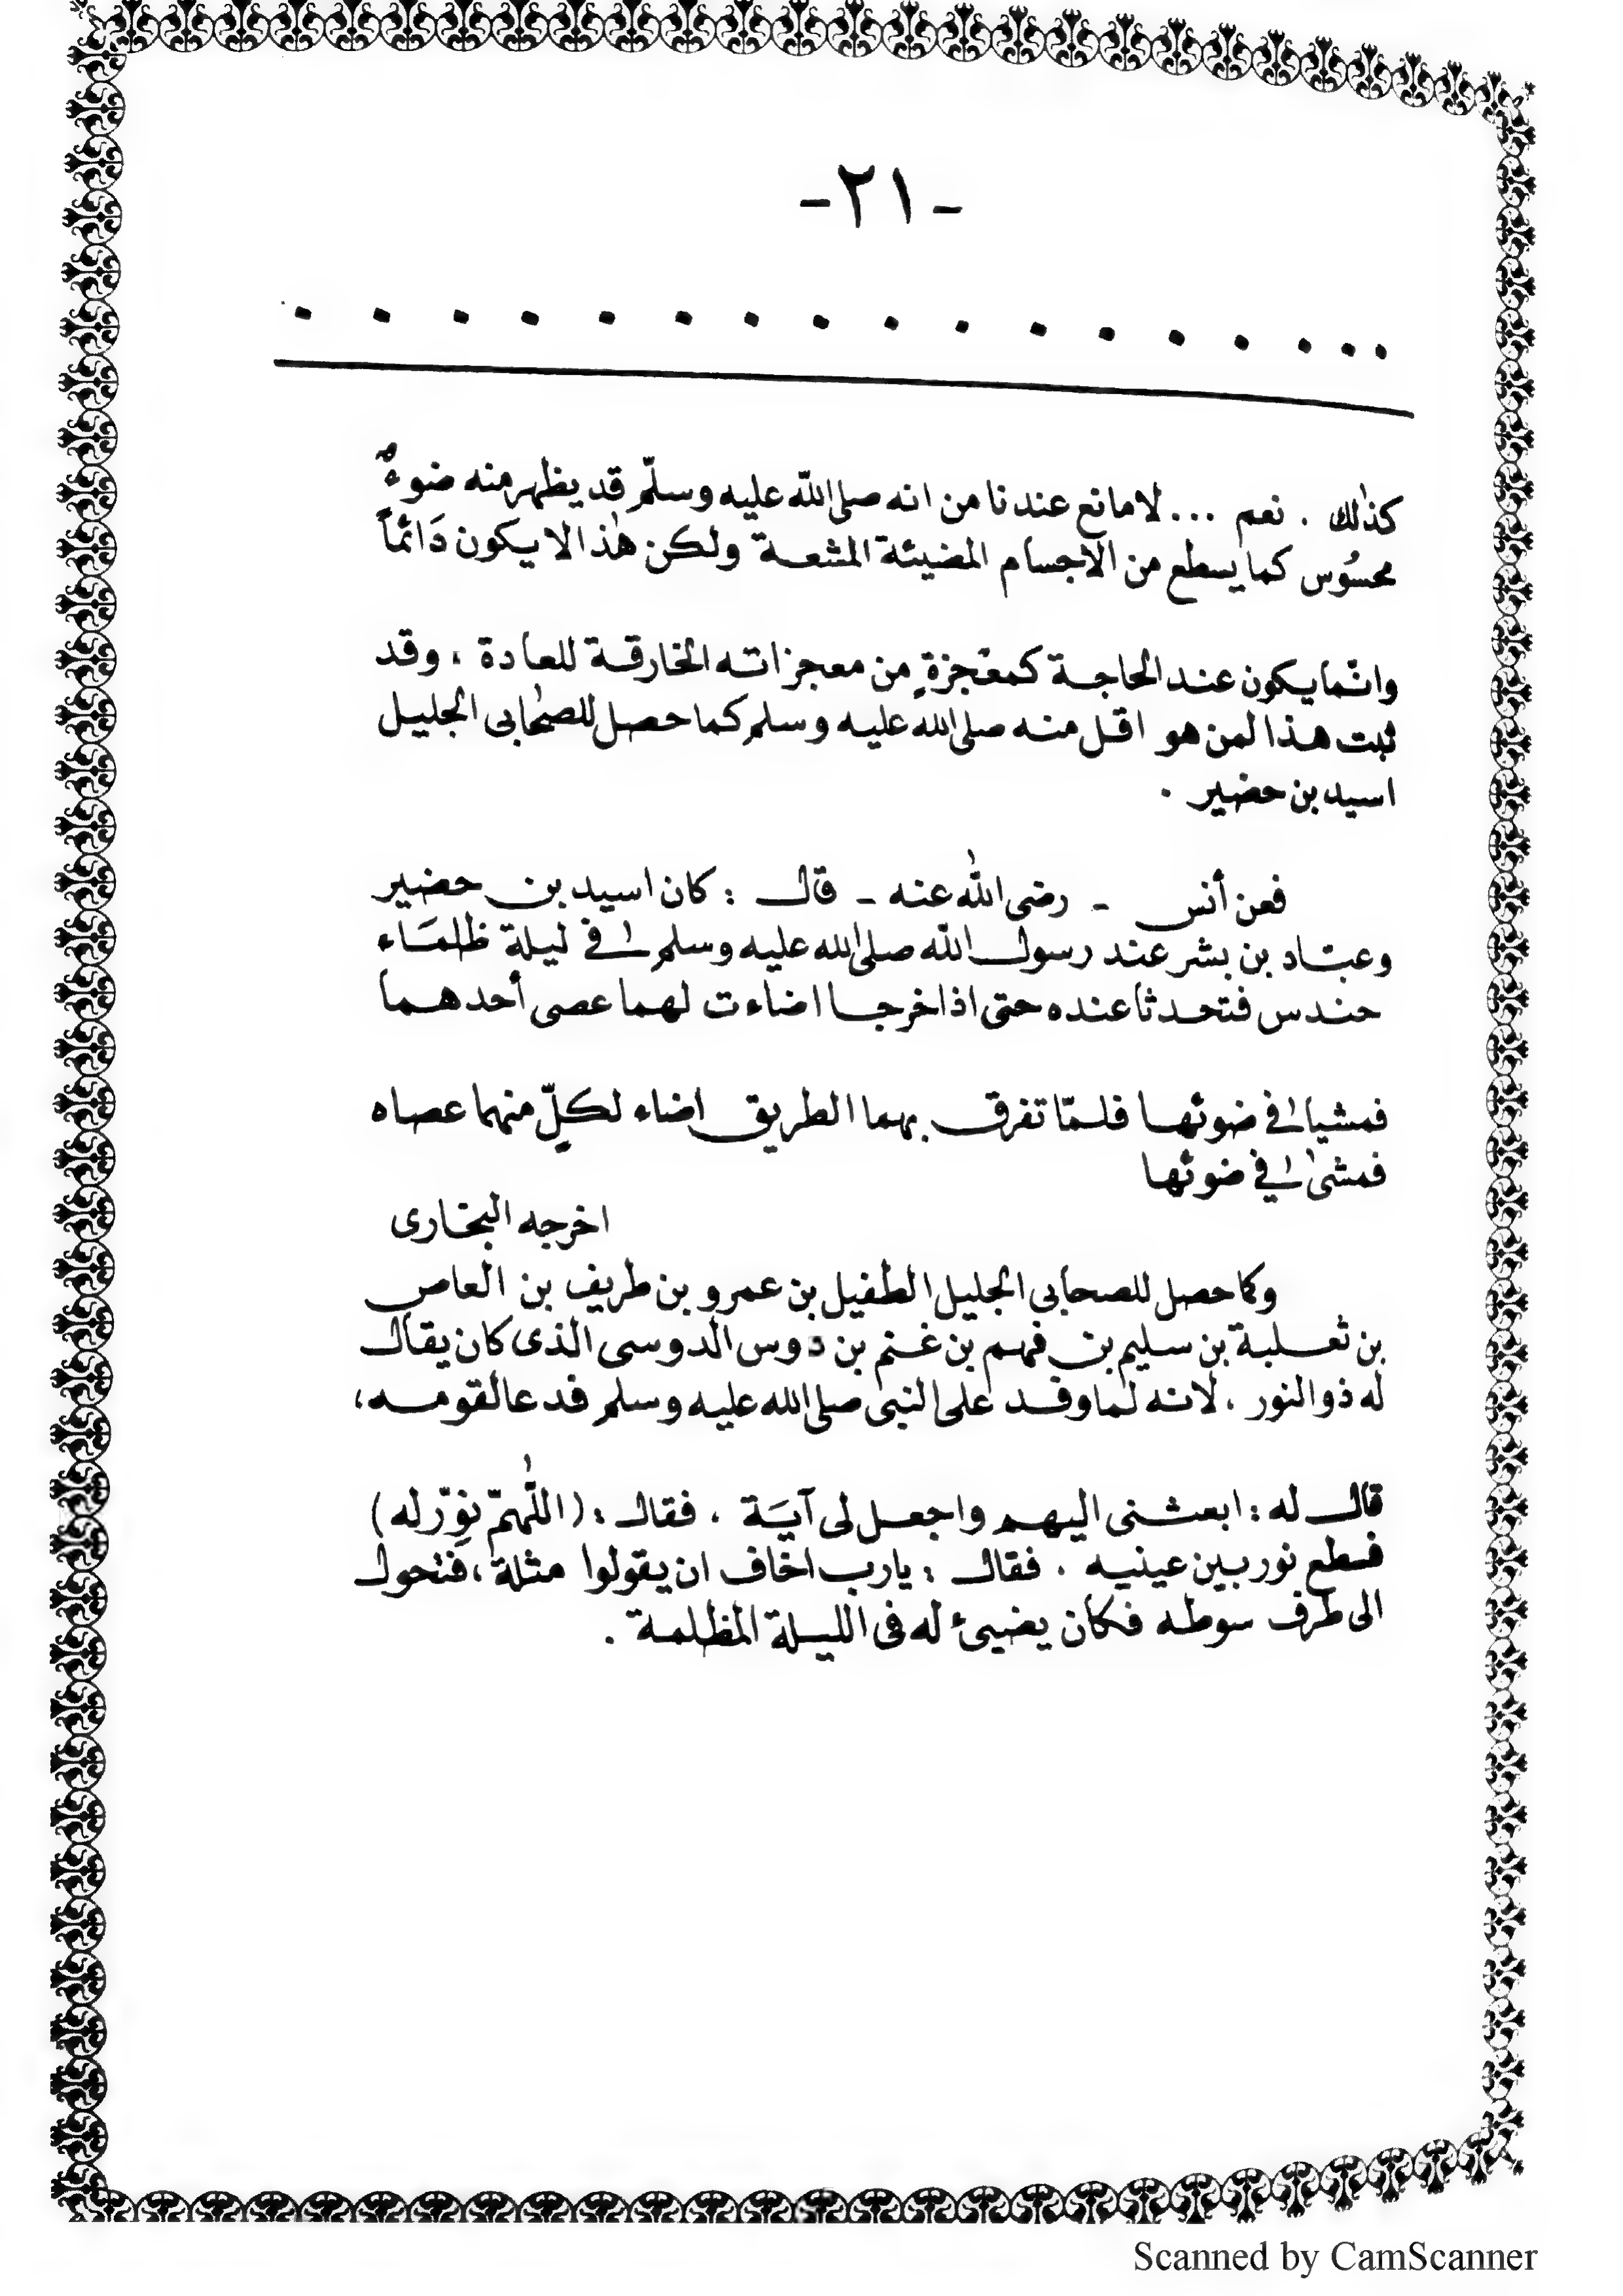 -٢١-
. . . . . . . . . . . . . . . . .
كذٰلك . نعم ... لامانع عندنا من انه صلى الله عليه وسلّم قد يظهر منه ضوءٌ
محسُوس كما يسطع من الاجسام المضيئة المشعة ولكن هٰذا لا يكون دَائماً
وانّما يكون عند الحاجة كمعْجزةٍ من معجزاته الخارقة للعادة ، وقد
ثبت هذا لمن هو اقل منه صلى الله عليه وسلم كما حصل للصحابى الجليل
اسيد بن حضير .
فعن أنس - رضى الله عنه - قال : كان اسيد بن حضير
وعبّاد بن بشر عند رسول الله صلى الله عليه وسلم فى ليلة ظلمَاء
حندس فتحدثا عنده حتى اذا خرجا اضاءت لهما عصى أحدهما
فمشيا فى ضوئها فلمّا تفرق بهما الطريق اضاء لكلٍّ منهما عصاه
فمشىٰ فى ضوئها
اخرجه البخارى
وكما حصل للصحابي الجليل الطفيل بن عمرو بن طريف بن العاص
بن ثعلبة بن سليم بن فهم بن غنم بن دوس الدوسى الذى كان يقال
له ذو النور ، لانه لما وفد على النبى صلى الله عليه وسلم فدعا لقومه ،
قال له : ابعثنى اليهم واجعل لى آيَة ، فقال : (اللّٰهمّ نوِّر له)
فسطع نور بين عينيه ، فقال : يارب اخاف ان يقولوا مثلة ، فتحول
الى طرف سوطه فكان يضيئ له فى الليلة المظلمة .
Scanned by CamScanner